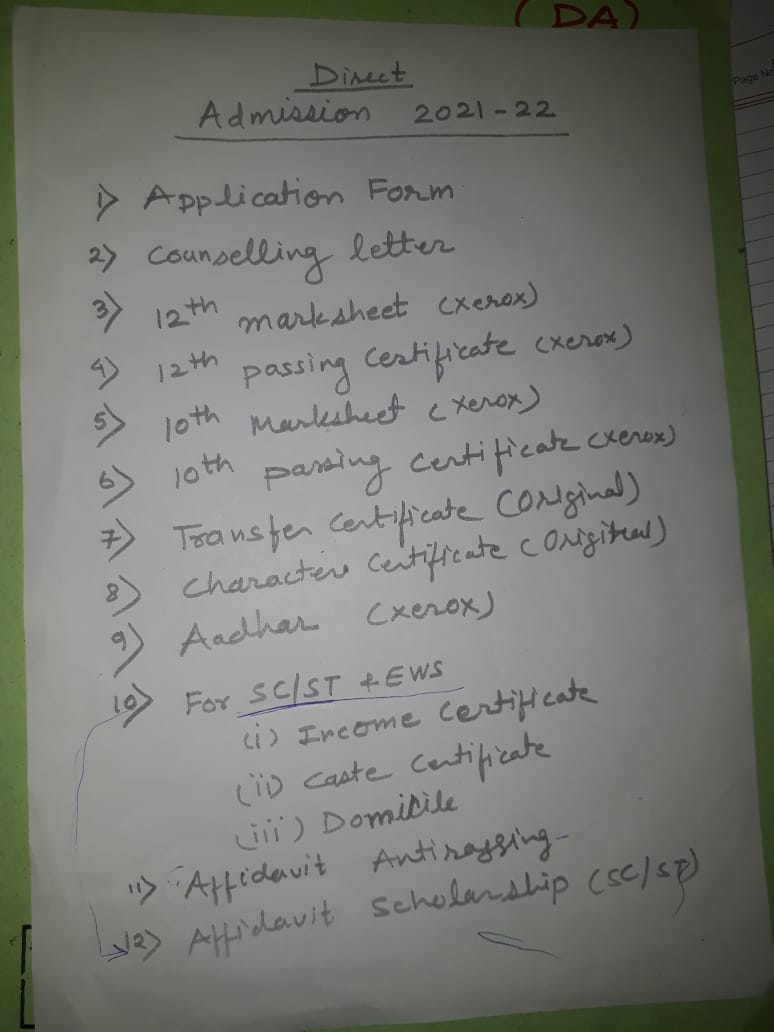 (DA)
Page No
Direct
Admission 2021-22
1) Application Form
2) Counselling letter
3) 12th marksheet (xerox)
4) 12th passing Certificate (xerox)
5) 10th Marksheet (xerox)
6) 10th passing Certificate (xerox)
7) Transfer Certificate (Original)
8) Character Certificate (Original)
9) Aadhar (xerox)
10) For SC/ST & EWS
(i) Income Certificate
(ii) Caste Certificate
(iii) Domicile
11) Affidavit Antiragging
12) Affidavit Scholarship (SC/ST)